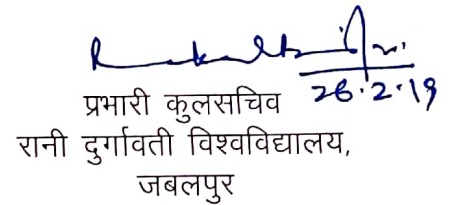 26.2.19
प्रभारी कुलसचिव
रानी दुर्गावती विश्वविद्यालय,
जबलपुर